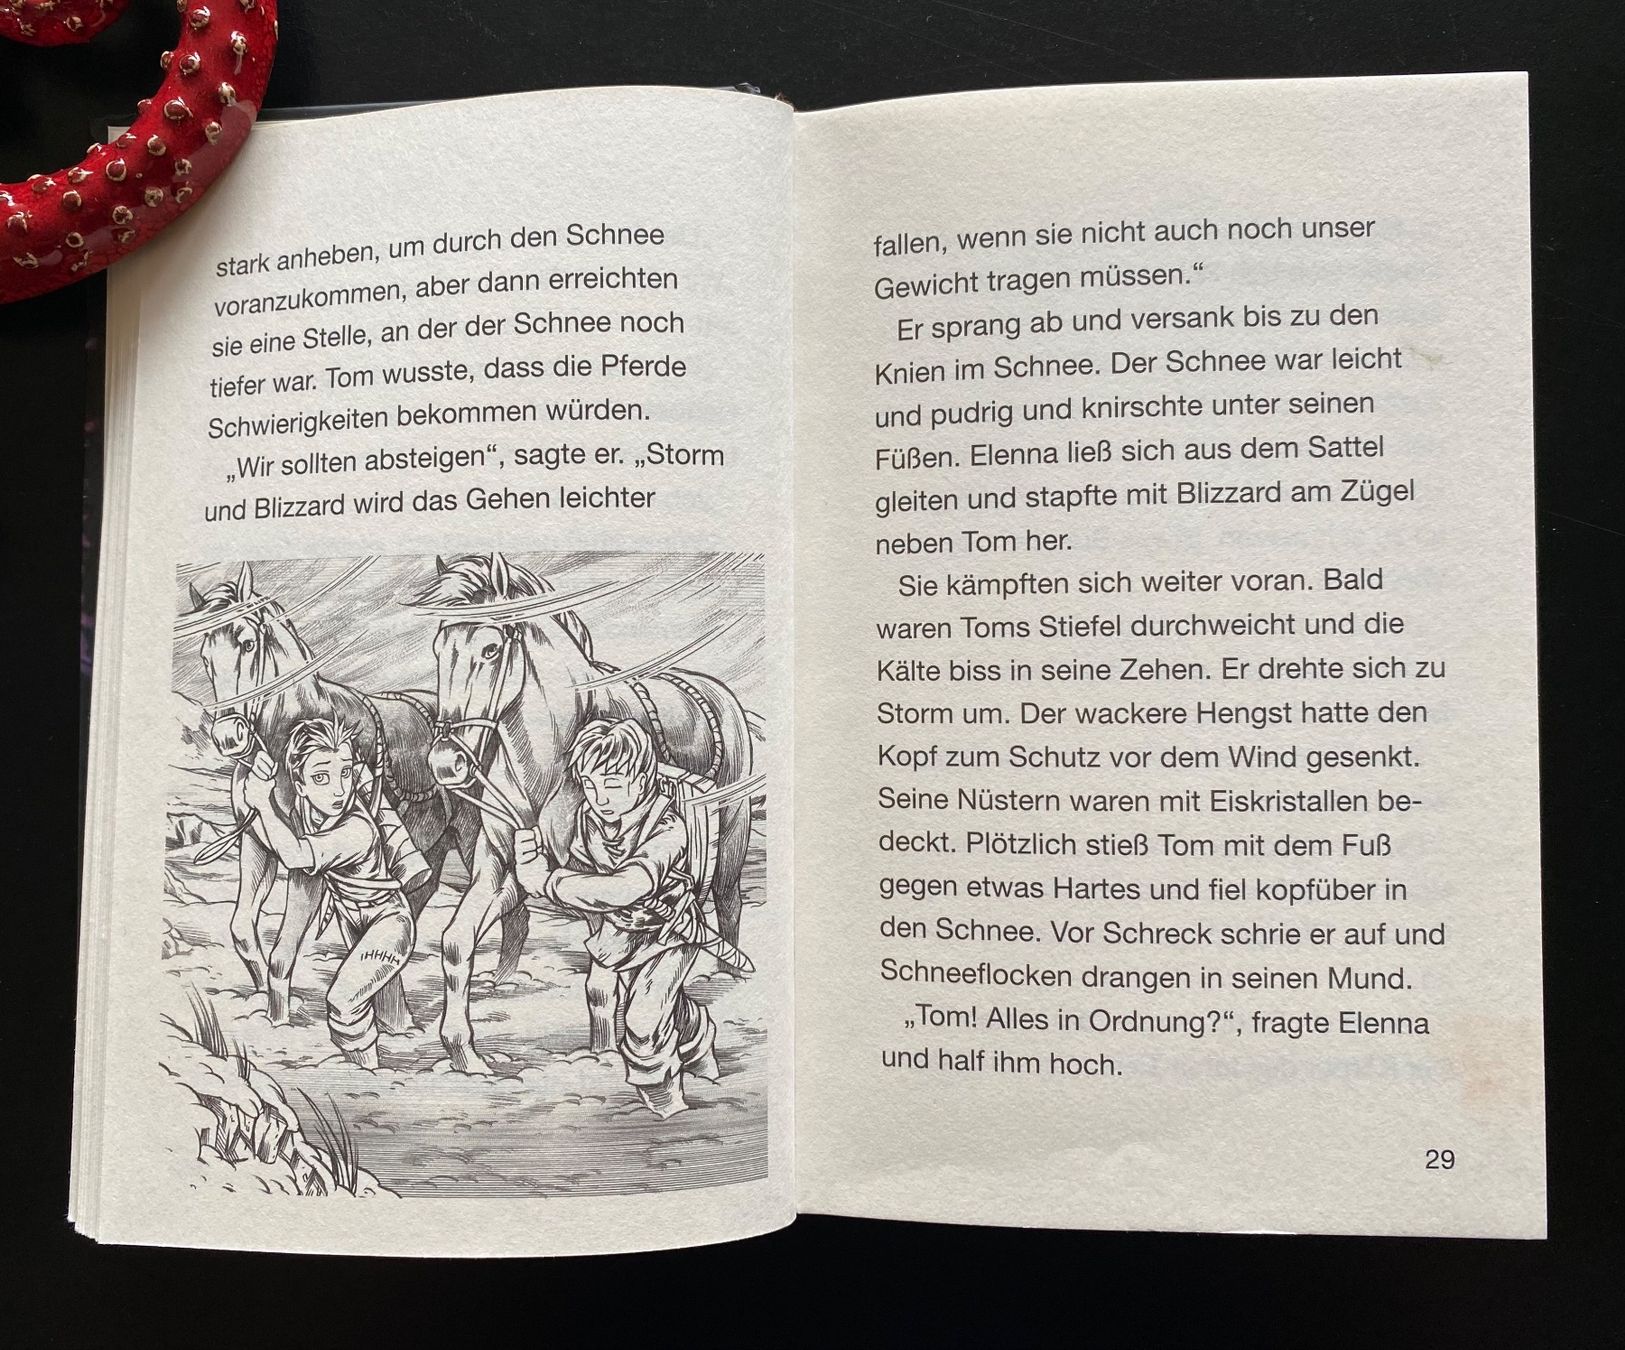 stark anheben, um durch den Schnee
voranzukommen, aber dann erreichten
sie eine Stelle, an der der Schnee noch
tiefer war. Tom wusste, dass die Pferde
Schwierigkeiten bekommen würden.
„Wir sollten absteigen“, sagte er. „Storm
und Blizzard wird das Gehen leichter
IHHHH
fallen, wenn sie nicht auch noch unser
Gewicht tragen müssen.“
Er sprang ab und versank bis zu den
Knien im Schnee. Der Schnee war leicht
und pudrig und knirschte unter seinen
Füßen. Elenna ließ sich aus dem Sattel
gleiten und stapfte mit Blizzard am Zügel
neben Tom her.
Sie kämpften sich weiter voran. Bald
waren Toms Stiefel durchweicht und die
Kälte biss in seine Zehen. Er drehte sich zu
Storm um. Der wackere Hengst hatte den
Kopf zum Schutz vor dem Wind gesenkt.
Seine Nüstern waren mit Eiskristallen be-
deckt. Plötzlich stieß Tom mit dem Fuß
gegen etwas Hartes und fiel kopfüber in
den Schnee. Vor Schreck schrie er auf und
Schneeflocken drangen in seinen Mund.
„Tom! Alles in Ordnung?“, fragte Elenna
und half ihm hoch.
29